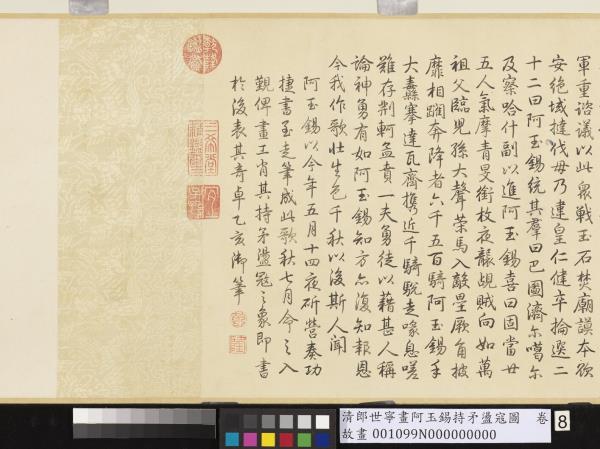 軍重諮議以此眾戰玉石焚廟謨本欲
安絕域撻伐毋乃違皇仁健卒掄選二
十二曰阿玉錫統其羣曰巴圖濟爾噶爾
及察哈什副以進阿玉錫喜曰固當廿
五人氣摩青旻銜枚夜襲覘賊向如萬
祖父臨兒孫大聲策馬入敵壘厥角披
靡相躪奔降者六千五百騎阿玉錫手
大纛搴達瓦齊攜近千騎駾走喙息嗟
難存荊軻孟賁一夫勇徒以藉甚人稱
論神勇有如阿玉錫知方亦復知報恩
今我作歌壯生色千秋以後斯人聞
阿玉錫以今年五月十四夜斫營奏功
捷書至走筆成此歌秋七月命之入
覲俾畫工肖其持矛盪寇之象即書
於後表其奇卓乙亥御筆
乾隆鑑賞
三希堂精鑑璽
宜子孫
清郎世寧畫阿玉錫持矛盪寇圖 卷
故畫 001099N000000000
8